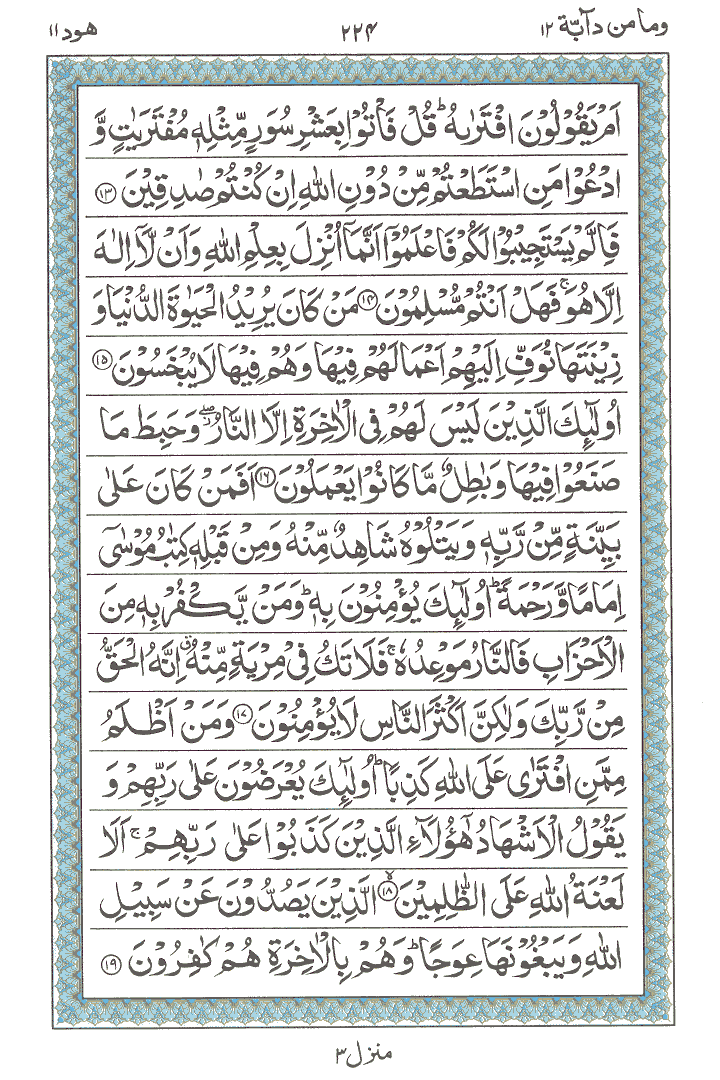 وما من دآبّة ۱۲
۲۲۴
هود ۱۱
اَمۡ يَقُوۡلُوۡنَ افۡتَرٰٮهُ‌ ؕ قُلۡ فَاۡتُوۡا بِعَشۡرِ سُوَرٍ مِّثۡلِهٖ مُفۡتَرَيٰتٍ وَّ
ادۡعُوۡا مَنِ اسۡتَطَعۡتُمۡ مِّنۡ دُوۡنِ اللّٰهِ اِنۡ كُنۡتُمۡ صٰدِقِيۡنَ ﴿۱۳﴾
فَاِلَّمۡ يَسۡتَجِيۡبُوۡا لَكُمۡ فَاعۡلَمُوۡۤا اَنَّمَاۤ اُنۡزِلَ بِعِلۡمِ اللّٰهِ وَاَنۡ لَّاۤ اِلٰهَ
اِلَّا هُوَ‌ ۚ فَهَلۡ اَنۡتُمۡ مُّسۡلِمُوۡنَ ﴿۱۴﴾ مَنۡ كَانَ يُرِيۡدُ الۡحَيٰوةَ الدُّنۡيَا وَ
زِيۡنَتَهَا نُوَفِّ اِلَيۡهِمۡ اَعۡمَالَهُمۡ فِيۡهَا وَهُمۡ فِيۡهَا لَا يُبۡخَسُوۡنَ ﴿۱۵﴾
اُولٰٓٮِٕكَ الَّذِيۡنَ لَيۡسَ لَهُمۡ فِى الۡاٰخِرَةِ اِلَّا النَّارُ ‌ۖ وَحَبِطَ مَا
صَنَعُوۡا فِيۡهَا وَبٰطِلٌ مَّا كَانُوۡا يَعۡمَلُوۡنَ ﴿۱۶﴾ اَفَمَنۡ كَانَ عَلٰى
بَيِّنَةٍ مِّنۡ رَّبِّهٖ وَيَتۡلُوۡهُ شَاهِدٌ مِّنۡهُ وَمِنۡ قَبۡلِهٖ كِتٰبُ مُوۡسٰٓى
اِمَامًا وَّرَحۡمَةً‌  ؕ اُولٰٓٮِٕكَ يُؤۡمِنُوۡنَ بِهٖ‌ ؕ وَمَنۡ يَّكۡفُرۡ بِهٖ مِنَ
الۡاَحۡزَابِ فَالنَّارُ مَوۡعِدُهٗ‌ ۚ فَلَا تَكُ فِىۡ مِرۡيَةٍ مِّنۡهُ‌ ۗ اِنَّهُ الۡحَقُّ
مِنۡ رَّبِّكَ وَلٰـكِنَّ اَكۡثَرَ النَّاسِ لَا يُؤۡمِنُوۡنَ ﴿۱۷﴾ وَمَنۡ اَظۡلَمُ
مِمَّنِ افۡتَرٰى عَلَى اللّٰهِ كَذِبًا‌  ؕ اُولٰٓٮِٕكَ يُعۡرَضُوۡنَ عَلٰى رَبِّهِمۡ وَ
يَقُوۡلُ الۡاَشۡهَادُ هٰٓؤُلَاۤءِ الَّذِيۡنَ كَذَبُوۡا عَلٰى رَبِّهِمۡ‌ ۚ اَلَا
لَعۡنَةُ اللّٰهِ عَلَى الظّٰلِمِيۡنَۙ ﴿۱۸﴾ الَّذِيۡنَ يَصُدُّوۡنَ عَنۡ سَبِيۡلِ
اللّٰهِ وَيَبۡغُوۡنَهَا عِوَجًا ؕ وَهُمۡ بِالۡاٰخِرَةِ هُمۡ كٰفِرُوۡنَ ﴿۱۹﴾
منزل ۳